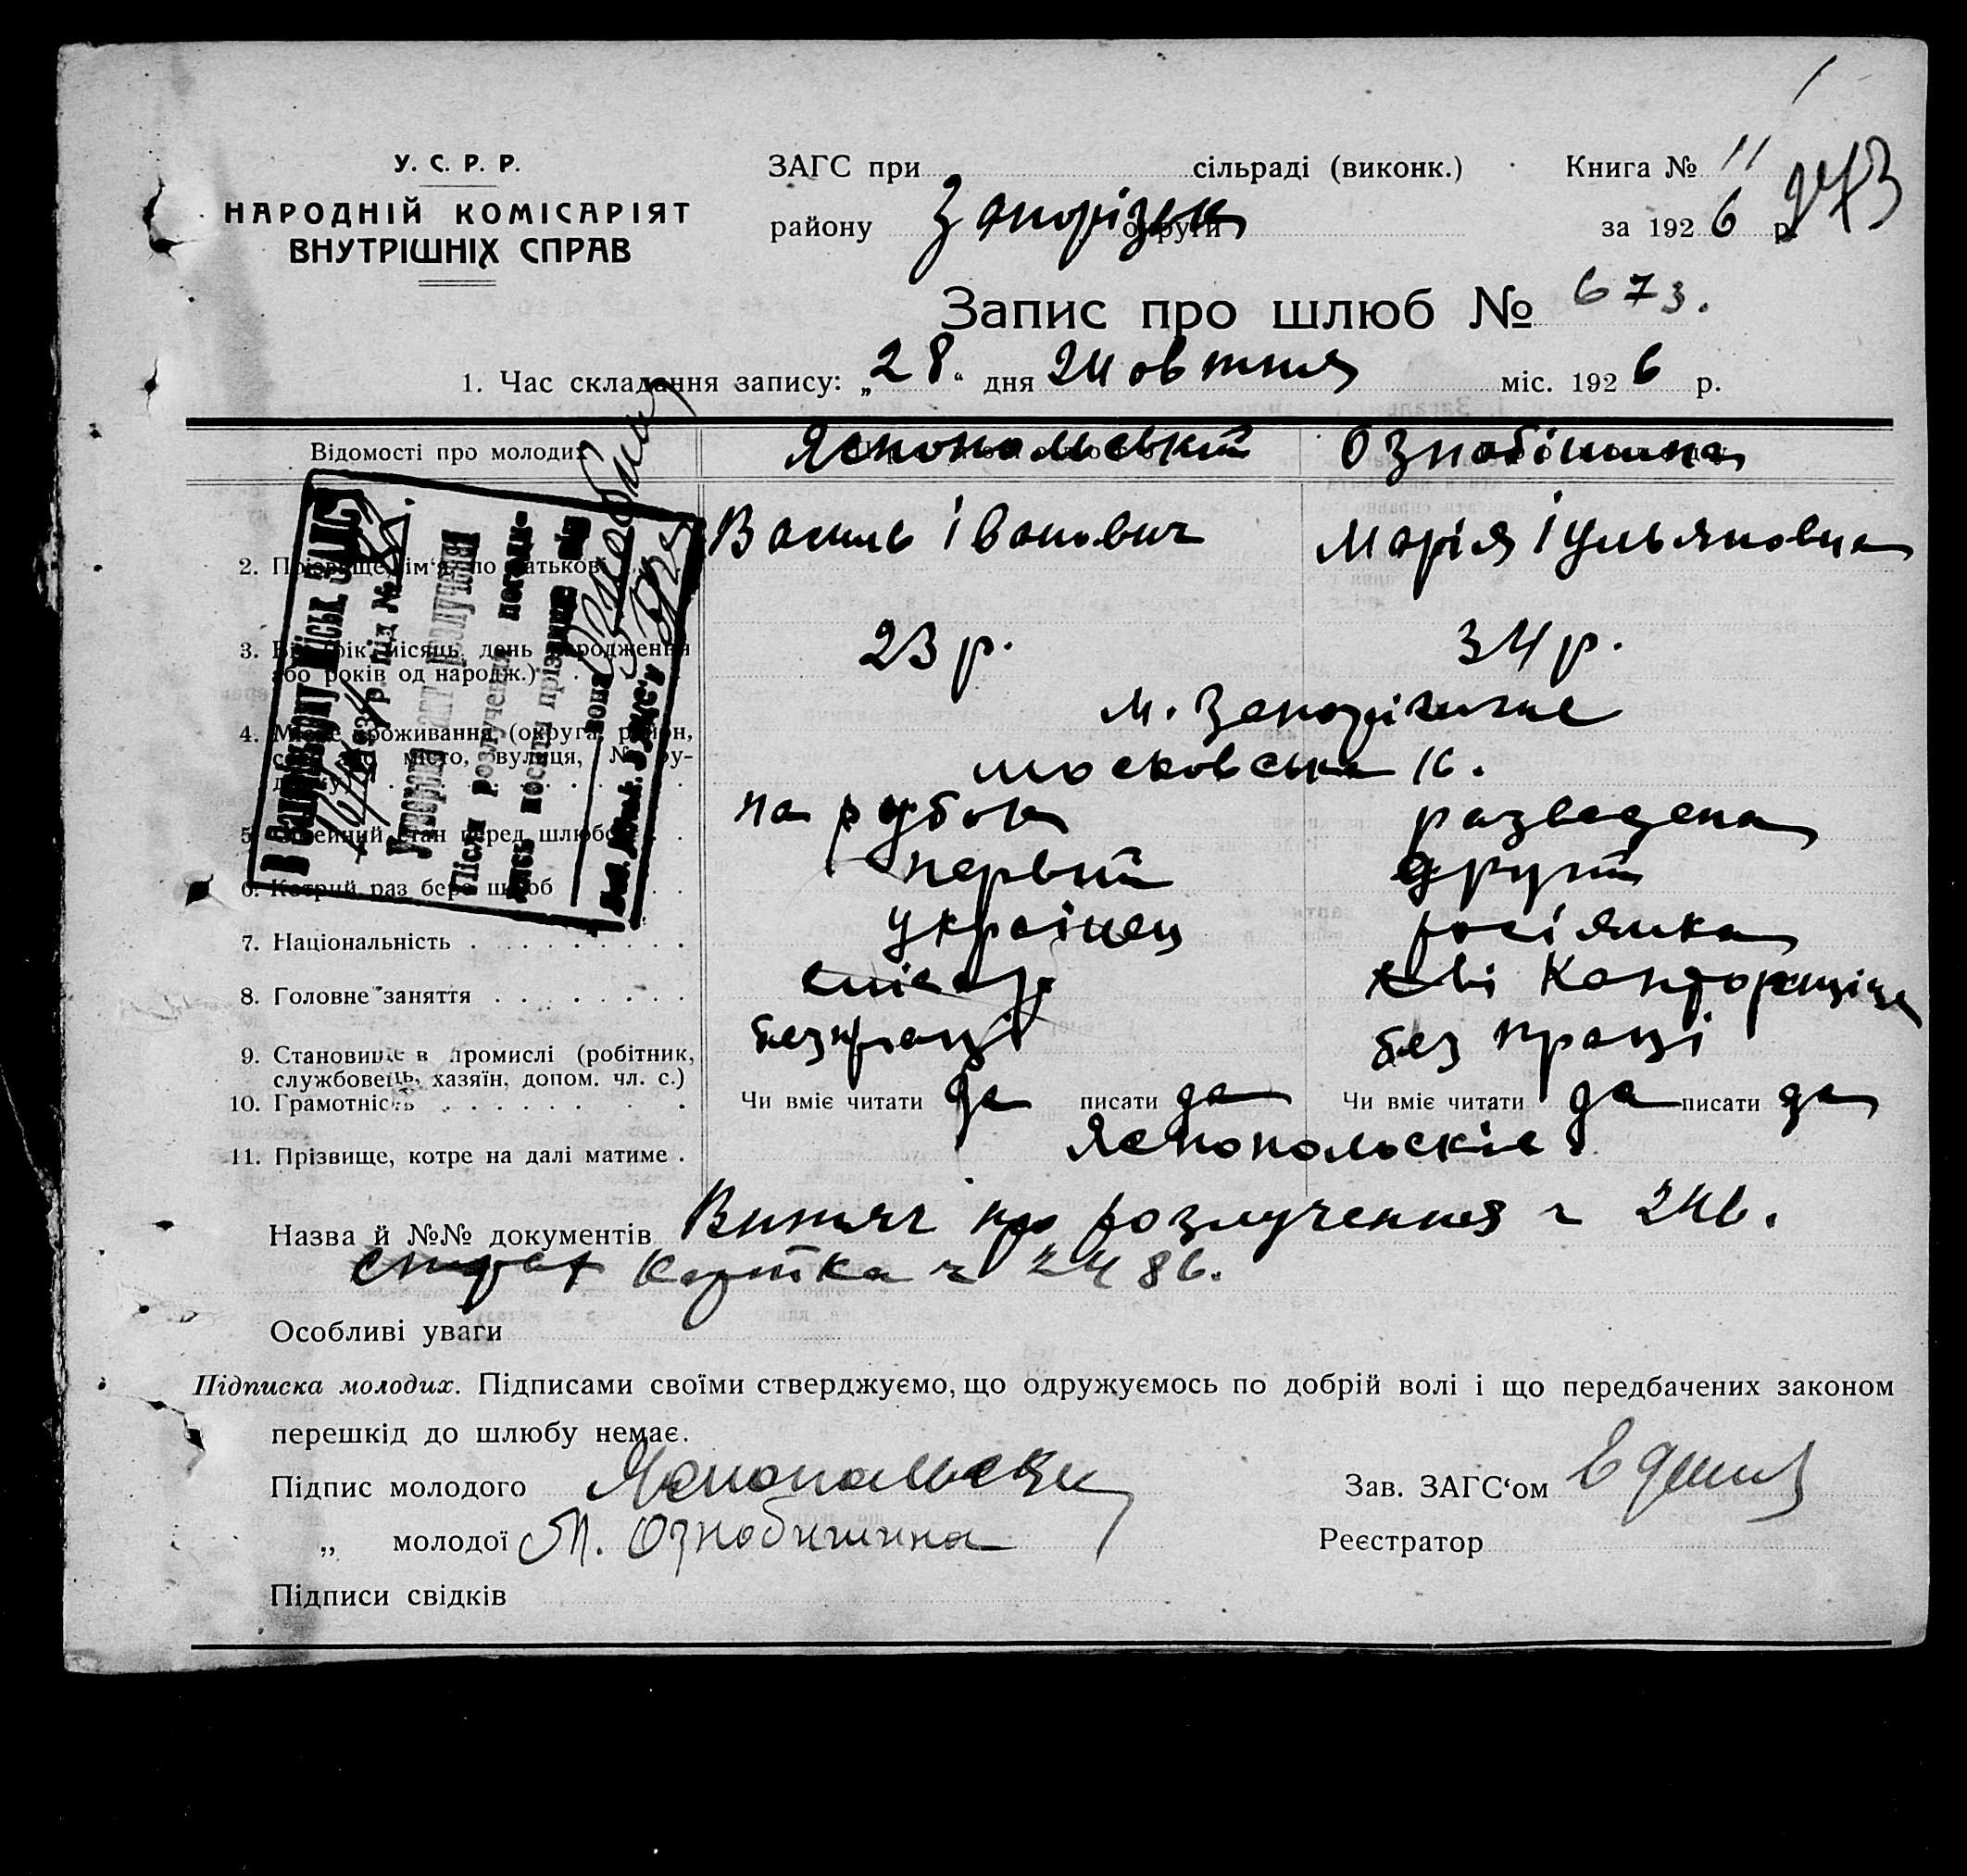 У. С. Р. Р.
НАРОДНІЙ КОМІСАРІЯТ
ВНУТРІШНІХ СПРАВ
ЗАГС при сільраді (виконк.)
району Запорізьк округи
Книга № 11
за 1926 р.
Запис про шлюб № 673.
1. Час складання запису: „28“ дня жовтня міс. 1926 р.
Відомості про молодих Яснопольський Ознобішина
2. Прізвище, ім'я, по батькові Василь Іванович Марія Іульяновна
3. Вік (рік, місяць, день народження
або років од народж.) 23 р. 34 р.
4. Місце проживання (округа, район,
село або місто, вулиця, № бу-
динку) м. Запоріжжє
Московська 16.
5. Сімейний стан перед шлюбом парубок разведена
6. Котрий раз бере шлюб первий другий
7. Національність українец росіянка
8. Головне заняття слюсар Конторщиця
9. Становище в промислі (робітник,
службовець, хазяїн, допом. чл. с.) без праці без праці
10. Грамотність Чи вміє читати да писати да Чи вміє читати да писати да
11. Прізвище, котре на далі матиме Яснопольскіє
Назва й №№ документів Витяг про розлучення ч 246.
картка ч 2486.
Особливі уваги
Підписка молодих. Підписами своїми стверджуємо, що одружуємось по добрій волі і що передбачених законом
перешкід до шлюбу немає.
Підпис молодого Яснопольски
„ молодої М. Ознобишина
Зав. ЗАГС‘ом
Реєстратор
Підписи свідків
В Запорізькому Міськ ЗАГС
193 р. під №
Утворено акт розлучення
Після розлучення погоди-
лись носити прізвище він
вона
Зав. Міськ. ЗАГС'у